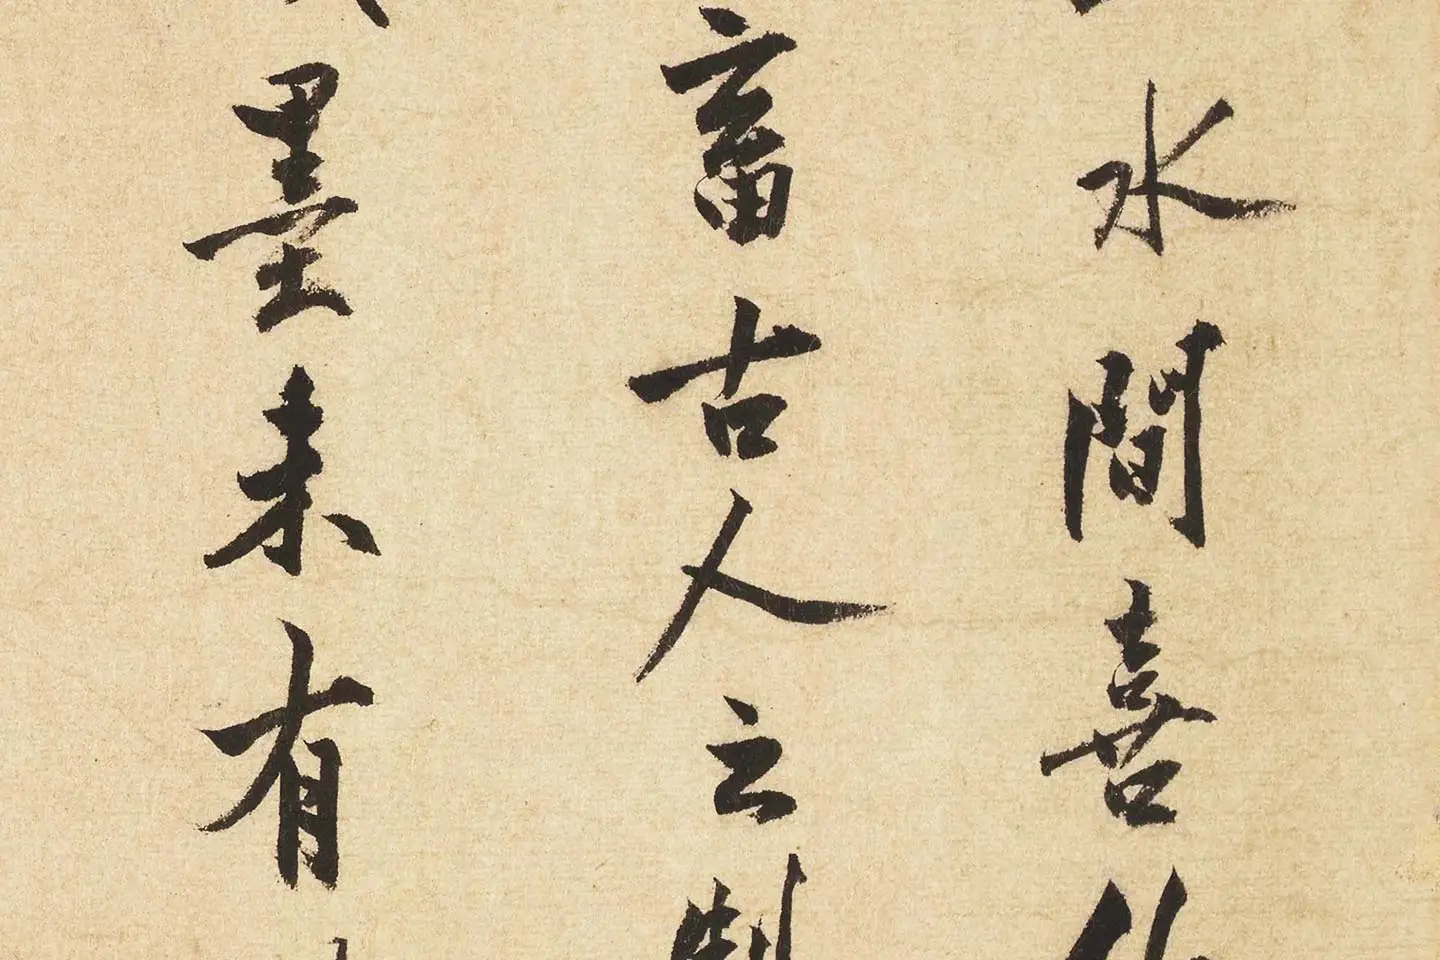 水間喜作
畜古人之製
墨未有